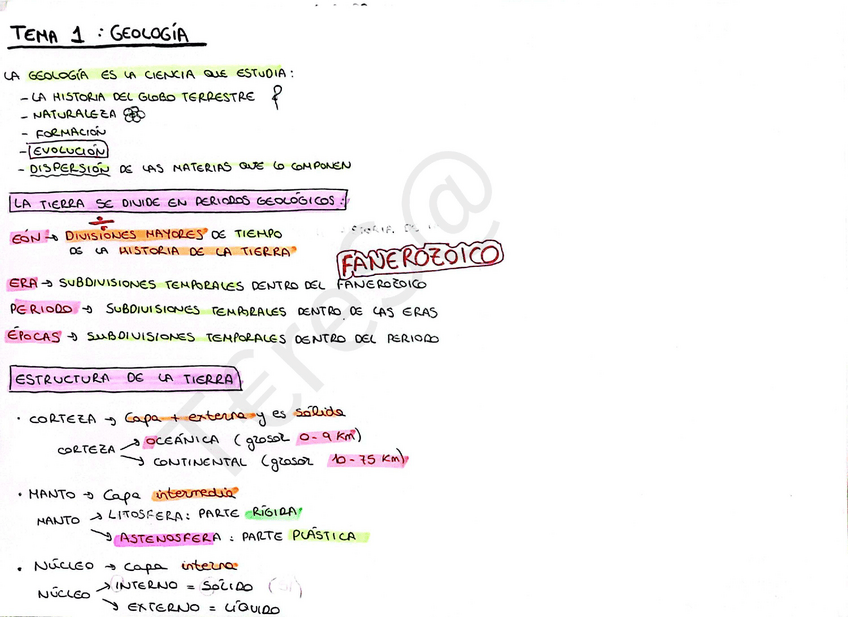 TEMA 1 : GEOLOGÍA
LA GEOLOGÍA ES LA CIENCIA QUE ESTUDIA:
- LA HISTORIA DEL GLOBO TERRESTRE
- NATURALEZA
- FORMACIÓN
- EVOLUCIÓN
- DISPERSIÓN DE LAS MATERIAS QUE LO COMPONEN
LA TIERRA SE DIVIDE EN PERIODOS GEOLÓGICOS:
EÓN → DIVISIONES MAYORES DE TIEMPO
DE LA HISTORIA DE LA TIERRA
FANEROZOICO
ERA → SUBDIVISIONES TEMPORALES DENTRO DEL FANEROZOICO
PERIODO → SUBDIVISIONES TEMPORALES DENTRO DE LAS ERAS
ÉPOCAS → SUBDIVISIONES TEMPORALES DENTRO DEL PERIODO
ESTRUCTURA DE LA TIERRA
· CORTEZA → Capa + externa y es sólida
CORTEZA → OCEÁNICA (grosor 0-9 Km)
→ CONTINENTAL (grosor 10-75 Km)
· MANTO → Capa intermedia
MANTO → LITOSFERA: PARTE RÍGIDA
→ ASTENOSFERA : PARTE PLÁSTICA
· NÚCLEO → Capa interna
NÚCLEO → INTERNO = SÓLIDO
→ EXTERNO = LÍQUIDO
Teres@